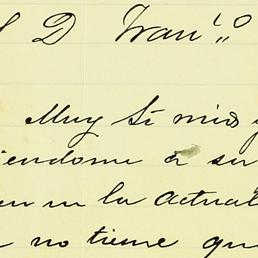 S D Fran.co
Muy Sr mio y
iendome a su
en en la actual
no tiene que